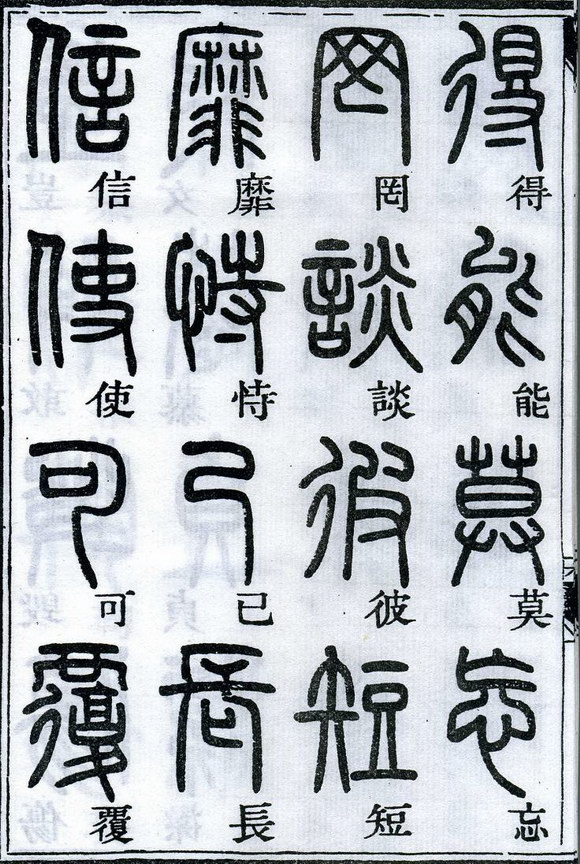 得能莫忘
罔談彼短
靡恃己長
信使可覆